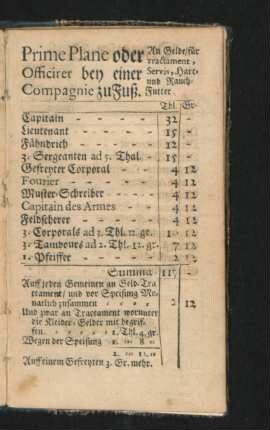 Prime Plane oder
Officirer bey einer
Compagnie zu Fuß.
An Gelde/für
Tractament,
Servis, Hart
und Rauch-
Futter
Thl. Gr.
Capitain - - - - 32 -
Lieutenant - - - - 15 -
Fähndrich - - - - 12 -
3. Sergeanten ad 5. Thal. - 15 -
Gefreyter Corporal - - 4 12
Fourier - - - - 4 12
Muster-Schreiber - - - 4 12
Capitain des Armes - - 4 12
Feldscherer - - - - 4 12
3. Corporals ad 3. Thl. 12. gr. 12
3. Tambours ad 2. Thl. 12. gr. 7 12
1. Pfeiffer - - - 2 12
Summa
Auff jeden Gemeinen an Geld-Tra
ctament/ und vor Speisung Mo-
natlich zusammen 2 12
Und zwar an Tractament worunter
die Kleider-Gelder mit begrif-
fen. 1. Thl. 4. gr.
Wegen der Speisung 1. 8
2. 12.
Auff einem Gefreyten 3. Gr. mehr.